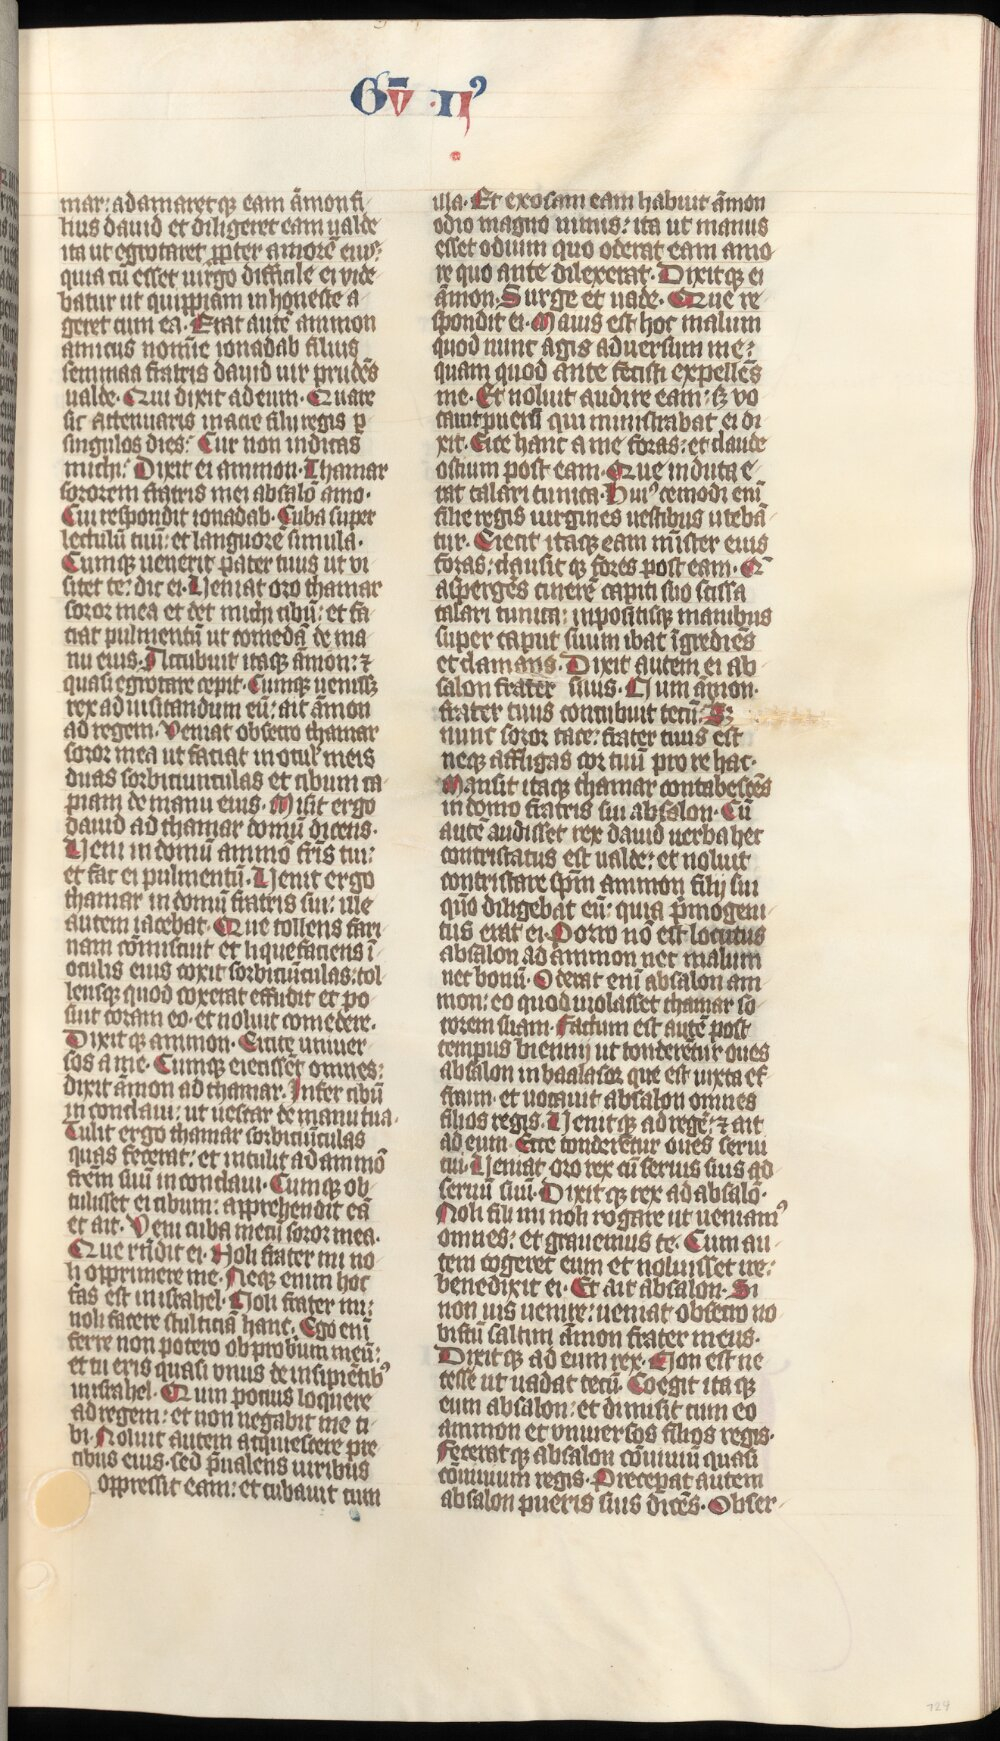 Gū ·II⁹
mar: adamaret q̄ eam āmon fi
lius dauid et diligeret eam ualde
ita ut egrotaret ꝓpter amorē eius:
quia cū esset uirgo difficile ei vide
batur ut quippiam inhoneste a
geret cum ea. Erat autē ammon
amicus nomīe ionadab filius
semmaa fratris dauid uir prudēs
ualde. Qui dixit ad eum. Quare
sic attenuaris macie fili regis ꝑ
singulos dies: Cur non indicas
michi: Dixit ei ammon. Thamar
sororem fratris mei absalō amo.
Cui respondit ionadab. Cuba super
lectulū tuū: et languorē simula.
Cumq; uenerit pater tuus ut vi
sitet te: dic ei. Veniat oro thamar
soror mea et det michi cibū: et fa
ciat pulmentū ut comedā de ma
nu eius. Accubuit itaq; āmon: ⁊
quasi egrotare cepit. Cumq; uenissꝫ
rex ad uisitandum eū: ait āmon
ad regem. Veniat obsecro thamar
soror mea ut faciat in octul' meis
duas sorbiciunculas et cibum ca
piam de manu eius. Misit ergo
dauid ad thamar domū dicens.
Veni in domū ammō fr̄is tui:
et fac ei pulmentū. Venit ergo
thamar in domū fratris sui: ille
autem iacebat. Que tollens fari
nam cōmiscuit et liquefaciens ī
oculis eius coxit sorbiciūculas: tol
lensq; quod coxerat effudit et po
suit coram eo. et noluit comedere.
Dixit q; ammon. Eicite univer
sos a me. Cumq; eiecissēt omnes:
dixit āmon ad thamar. Infer cibū
in conclaui: ut uescar de manu tua.
Tulit ergo thamar sorbiciūculas
quas fecerat: et intulit ad ammō
fr̄em suū in conclaui. Cumq; ob
tulisset ei cibum: apprehendit eā
et ait. Veni cuba mecū soror mea.
Que rn̄dit ei. Noli frater mi no
li opprimere me. Neq; enim hoc
fas est in israhel. Noli frater mi:
noli facere stulticiā hanc. Ego enī
ferre non potero obprobrium meū:
et tu eris quasi vnus de insipiētib⁹
in israhel. Quin pocius loquere
ad regem: et non negabit me ti
bi. Noluit autem acquiescere pre
cibus eius. sed p̄ualens uiribus
oppressit eam: et cubauit cum
illa. Et exosam eam habuit āmon
odio magno nimis: ita ut maius
esset odium quo oderat eam amo
re quo ante dilexerat. Dixit q; ei
āmon. Surge et uade. Que re
spondit ei. Maius est hoc malum
quod nunc agis aduersum me:
quam quod ante fecisti expellēs
me. Et noluit audire eam: sꝫ vo
cauit puerū qui ministrabat ei di
xit. Eice hanc a me foras: et claude
ostium post eam. Que induta e
rat talari tunica. Hui⁹cemodi enī
filie regis uirgines uestibus utebā
tur. Eiecit itaq; eam mīster eius
foras: clausit q; fores post eam. Q̄
aspergēs cinerē capiti suo scissa
talari tunica: inpositisq; manibus
super caput suum ibat īgrediēs
et clamans. Dixit autem ei ab
salon frater suus. Num āmon
frater tuus concubuit tecū. Sꝫ
nunc soror tace: frater tuus est
neq; affligas cor tuū pro re hac.
Mansit itaq; thamar contabescēs
in domo fratris sui absalon. Cū
autē audisset rex dauid uerba hec
contristatus est ualde: et noluit
contristare sp̄m ammon filij sui
qūo diligebat eū: quia p̄mogeni
tus erat ei. Porro nō est locutus
absalon ad ammon nec malum
nec bonū. Oderat enī absalon am
mon: eo quod uiolasset thamar so
rorem suam. Factum est autē post
tempus biennij ut tonderētur oues
absalon in baalasor que est iuxta ef
fraim. et uocauit absalon omnes
filios regis. Venit q; ad regē: ⁊ ait
ad eum. Ecce tonderētur oues serui
tui. Veniat oro rex cū seruis suis ad
seruū suū. Dixit q; rex ad absalō.
Noli fili mi noli rogare ut ueniam⁹
omnes: et grauemus te. Cum au
tem cogeret eum et noluisset ire:
benedixit ei. Et ait absalon. Si
non uis uenire: ueniat obsecro no
biscū saltim āmon frater meus.
Dixit q; ad eum rex. Non est ne
cesse ut uadat tecū. Coegit ita q;
eum absalon: et dimisit cum eo
ammon et vniuersos filios regis.
Fecerat q; absalon cōuiuiū quasi
cōuiuium regis. Preceperat autem
absalon pueris suis dicēs. Obser
129